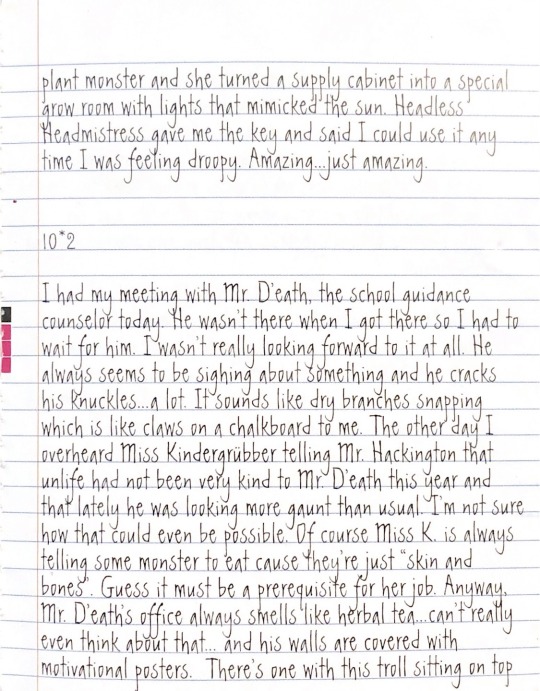 plant monster and she turned a supply cabinet into a special
grow room with lights that mimicked the sun. Headless
Headmistress gave me the key and said I could use it any
time I was feeling droopy. Amazing...just amazing.
10*2
I had my meeting with Mr. D'eath, the school guidance
counselor today. He wasn't there when I got there so I had to
wait for him. I wasn't really looking forward to it at all. He
always seems to be sighing about something and he cracks
his knuckles...a lot. It sounds like dry branches snapping
which is like claws on a chalkboard to me. The other day I
overheard Miss Kindergrübber telling Mr. Hackington that
unlife had not been very kind to Mr. D'eath this year and
that lately he was looking more gaunt than usual. I'm not sure
how that could even be possible. Of course Miss K. is always
telling some monster to eat cause they're just "skin and
bones". Guess it must be a prerequisite for her job. Anyway,
Mr. D'eath's office always smells like herbal tea...can't really
even think about that... and his walls are covered with
motivational posters. There's one with this troll sitting on top